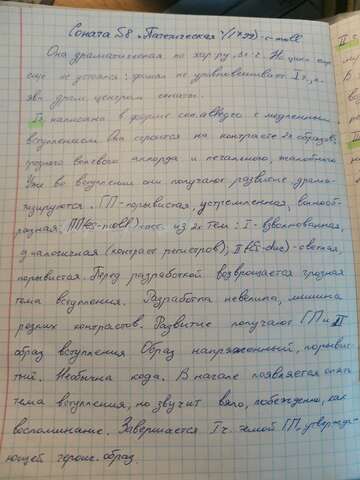 Соната №8 «Патетическая» (1799) c-moll
Она драматическая по хар-ру, 3х ч. Но цикл еще
еще не устоялся: финал не уравновешивает I ч.,
явл. драм. центром сонаты.
I ч. написана в форме сон. аллегро с медленным
вступлением. Он строится на контрасте 2х образов:
грозного волевого аккорда и печального, жалобного.
Уже во вступлении они получают развитие, драма-
тизируются. ГП - порывистая, устремленная, волнооб-
разная; ПП (es-moll) сост. из 2х тем: I - взволнованная,
диалогичная (контраст регистров); II (Es-dur) - светлая,
порывистая. Перед разработкой возвращается грозная
тема вступления. Разработка невелика, лишена
резких контрастов. Развитие получают ГП и II
образ вступления. Образ напряженный, порывис-
тый. Необычна кода. В начале появляется опять
тема вступления, но звучит вяло, побежденно, как
воспоминание. Завершается I ч. темой ГП, утвержда-
ющей героич. образ.